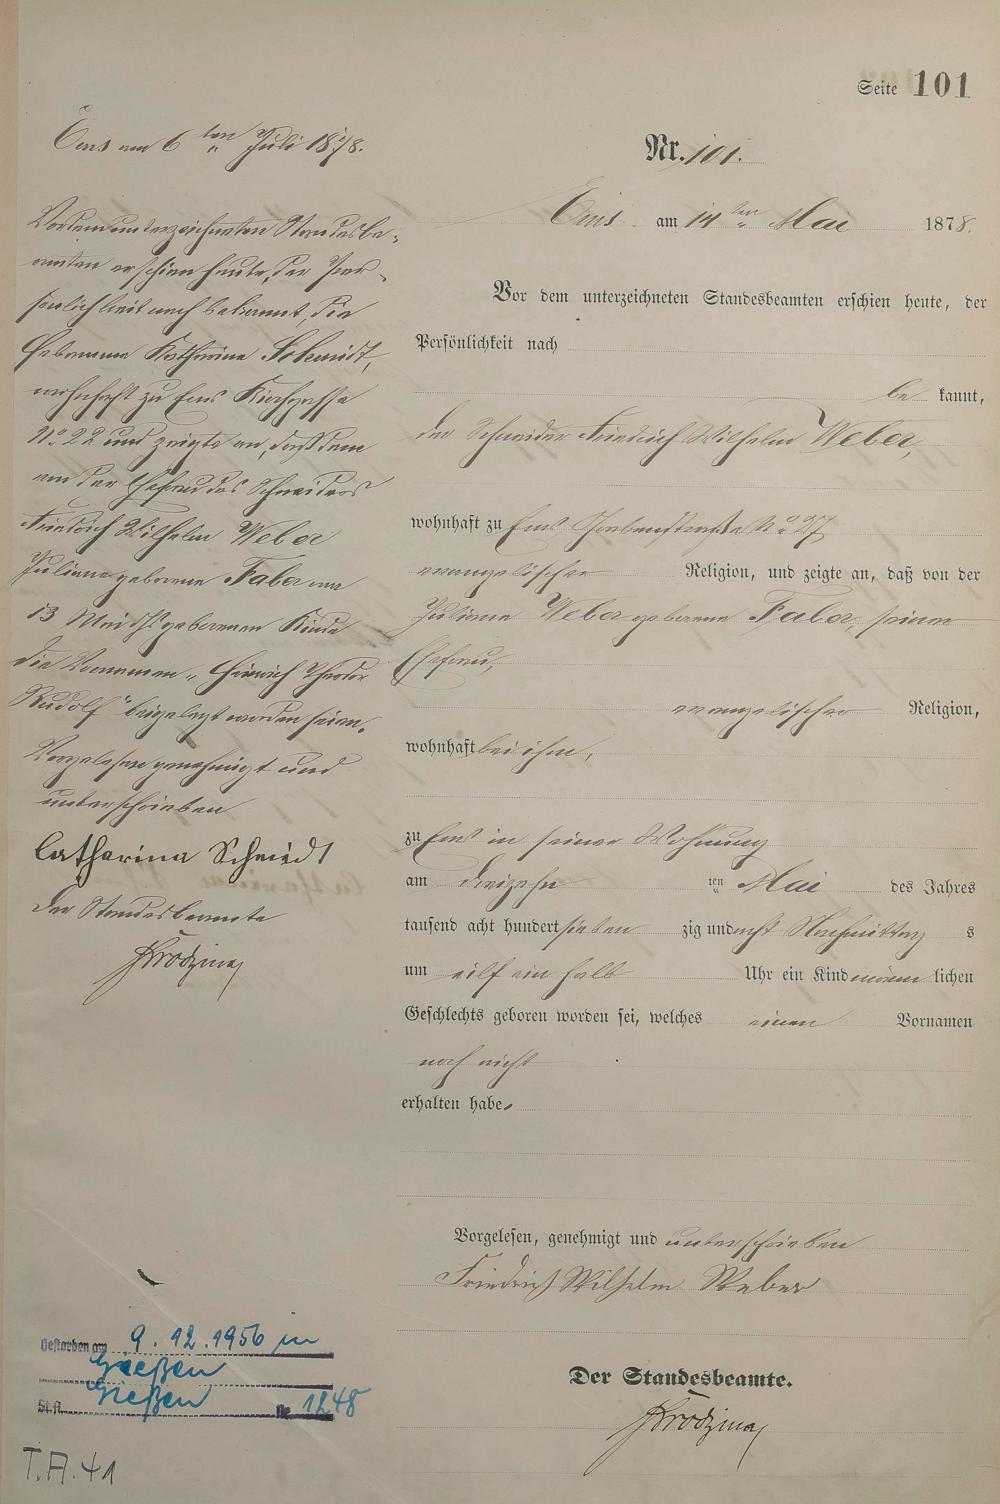 Seite 101
Nr. 101.
Ems am 14 ten Mai 1878.
Vor dem unterzeichneten Standesbeamten erschien heute, der
Persönlichkeit nach
be kannt,
der Schneider Friedrich Wilhelm Weber,
wohnhaft zu Ems No 27
evangelischer Religion, und zeigte an, daß von der
Juliane Weber geborene Faber, seiner
Ehefrau,
evangelischer Religion,
wohnhaft bei ihm,
zu Ems in seiner Wohnung
am dreizehn ten Mai des Jahres
tausend acht hundert sieben zig und acht Nachmittag s
um eilf ein halb Uhr ein Kind männ lichen
Geschlechts geboren worden sei, welches einen Vornamen
noch nicht
erhalten habe.
Vorgelesen, genehmigt und unterschrieben
Friedrich Wilhelm Weber
Der Standesbeamte.
Ems am 6 ten Juli 1878.
Vor dem unterzeichneten Standesbe-
amten erschien heute, der Per-
sönlichkeit nach bekannt, die
Hebamme Katharina Schmidt,
wohnhaft zu Ems Kirchgasse
No 22 und zeigte an, daß dem
von der Ehefrau des Schneiders
Friedrich Wilhelm Weber
Juliane geborene Faber am
13 Mai d. Js. geborenen Kinde
die Vornamen „Heinrich Theodor
Rudolf" beigelegt worden seien.
Vorgelesen genehmigt und
unterschrieben
Catharina Schmidt
Der Standesbeamte
Gestorben am 9.12.1956 in
Gießen
St.A. Gießen Nr. 1248
T.A. 41